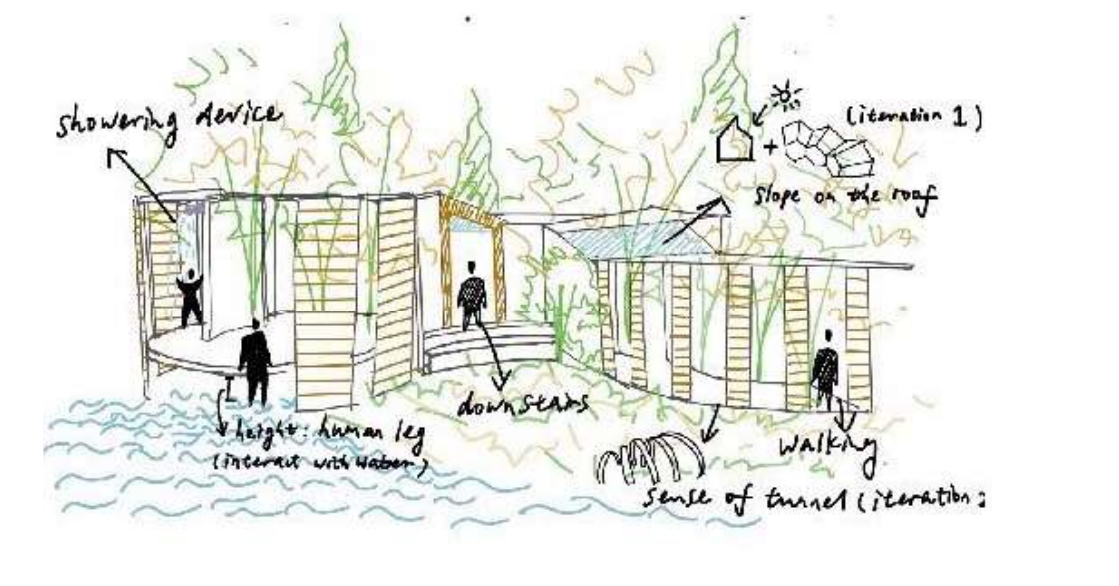 showering device
(iteration 1)
+
slope on the roof
downstairs
height: human leg
(interact with water)
walking
sense of tunnel (iteration